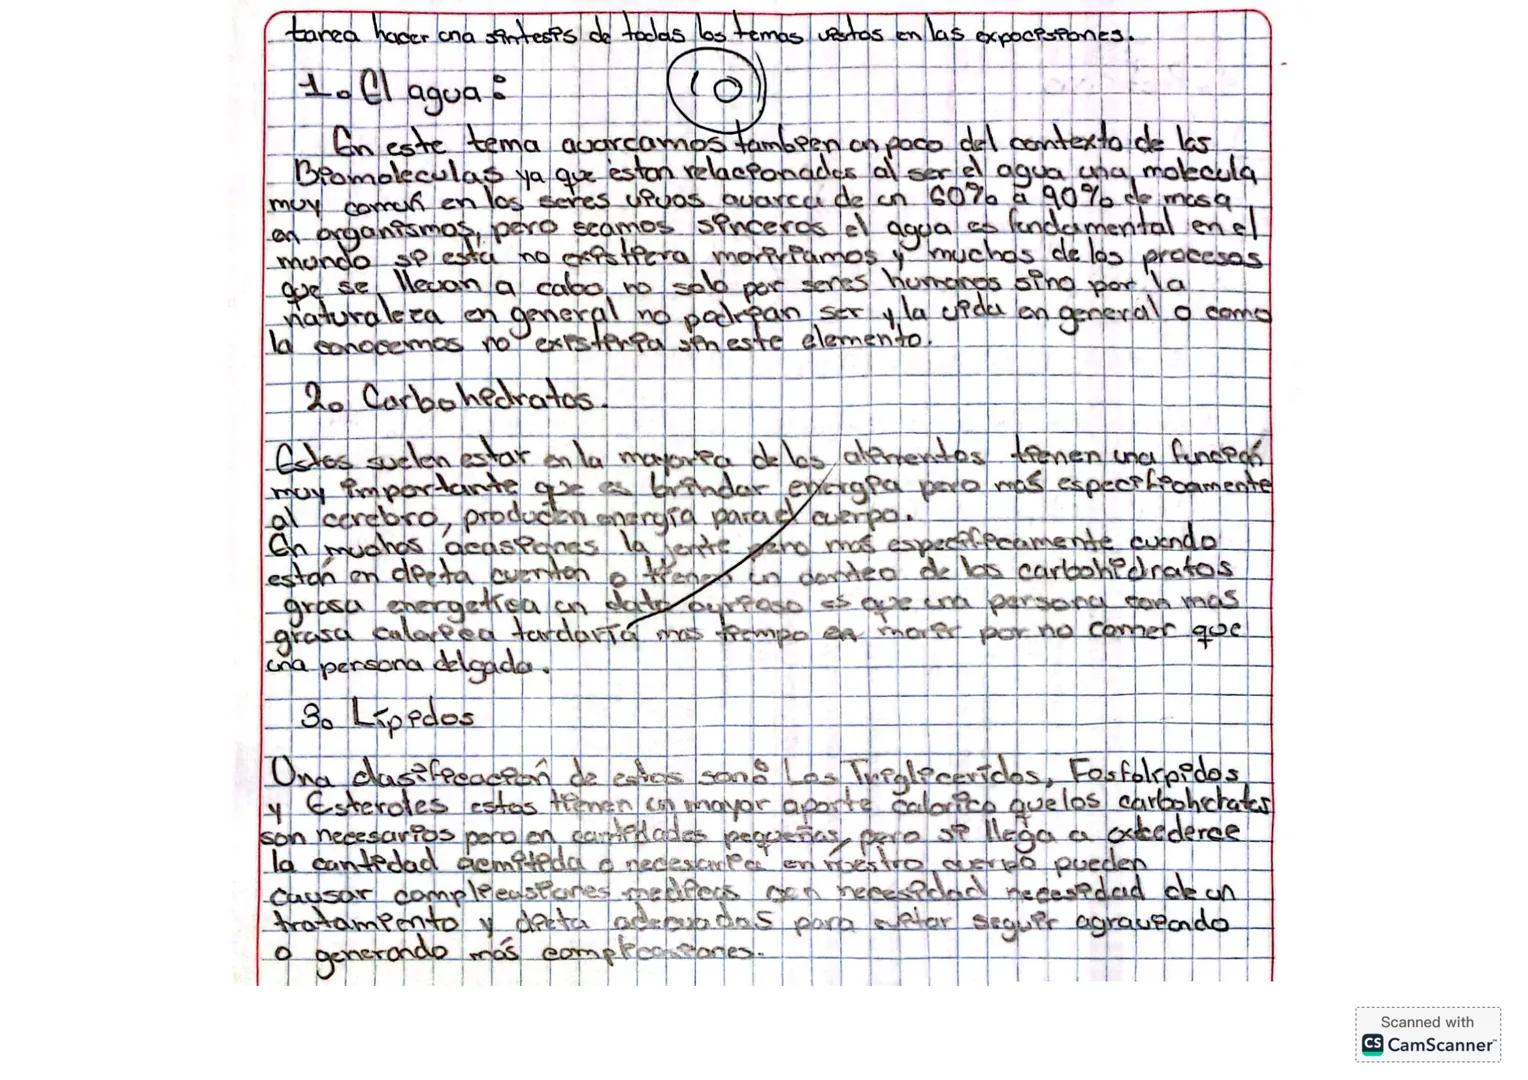 tarea hacer una sintesis de todas los temas vistos en las expocisiones.
10
1. El agua:
En este tema avarcamos tambien un poco del contexto de las
Biomoleculas ya que estan relacionados al ser el agua una molecula
muy comun en los seres vivos avarca de un 60% a 90% de masa
en organismos, pero seamos sinceros el agua es fundamental en el
mundo si esta no existiera moririamos y muchos de los procesos
que se llevan a cabo no solo por seres humanos sino por la
naturaleza en general no podrian ser y la vida en general o como
la conocemos no existiria sin este elemento.
2. Carbohidratos.
Estos suelen estar en la mayoria de los alimentos tienen una función
muy importante que es brindar energia pero más especificamente
al cerebro, producen energía para el cuerpo.
En muchos ocasiones la jente pero más especificamente cuando
están en dieta cuentan o tienen un conteo de los carbohidratos
grasa energetica un dato curioso es que una persona con mas
grasa calorica tardaría mas tiempo en morir por no comer que
una persona delgada.
3. Lípidos
Una clasificación de estos son: Los Trigliceridos, Fosfolipidos
y Esteroles estos tienen un mayor aporte calorico que los carbohidratos
son necesarios pero en cantidades pequeñas, pero si llega a exederce
la cantidad acmitida o necesaria en nuestro cuerpo pueden
causar complicaciones medicas con necesidad necesidad de un
tratamiento y dieta adecuadas para evitar seguir agraviando
o generando más complicaciones.
Scanned with
CS CamScanner